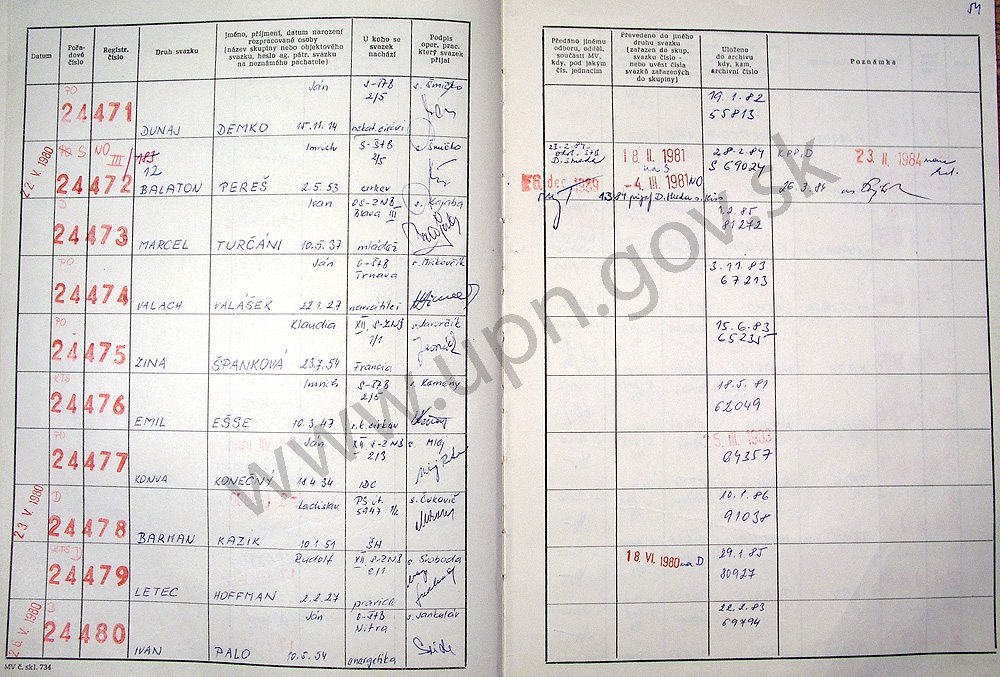 Datum
Pořadové číslo
Registr. číslo
Druh svazku
Jméno, příjmení, datum narození rozpracované osoby (název skupiny nebo objektového svazku, heslo ag. pátr. svazku na neznámého pachatele)
U koho se svazek nachází
Podpis oper. prac. který svazek přijal
Předáno jinému odboru, odděl. součásti MV, kdy, pod jakým čís. jednacím
Převedeno do jiného druhu svazku (zařazen do skup. svazku číslo - nebo uvést čísla svazků zařazených do skupiny)
Uloženo do archivu kdy, kam, archivní číslo
Poznámka
PO
24471
Ján
S-ŠTB
2/5
DUNAJ DEMKO 15.11.14
19.1.82
55813
22 V. 1980
S NO
III
183
12
24472
Imrich
S-ŠTB
2/5
BALATON PEREŠ 2.5.53 cirkev
23.2.84
26. dec. 1989
18. II. 1981
na S
-4. III. 1981 NO
28.2.84
S 69024
23. II. 1984
26.3.84
24473
Ivan
OS-ZNB
Blava III
s. Kajaba
MARCEL TURČÁNI 10.5.37 mládež
1.2.85
81272
PO
24474
Ján
Trnava
VALACH VALÁŠEK 22.1.27
3.11.83
67213
PO
24475
Klaudia
XII. S-ZNB
1/1
s. Javorčík
ZINA ŠPANKOVÁ 23.7.54 Francia
15.6.83
65235
KTS
24476
Imrich
S-ŠTB
2/5
s. Kamený
EMIL EŠŠE 10.3.47 r.k. cirkev
18.5.81
62049
PO
24477
Ján
XII S-ZNB
2/3
KONVA KONEČNÝ 11.4.34 IDC
15. III. 1983
64357
23. V. 1980
D
24478
Ladislav
PS út.
5947
s. Čukovič
BARMAN KAZIK 10.1.51 ŠH
10.1.86
91038
24479
Rudolf
XII. S-ZNB
2/1
s. Svoboda
LETEC HOFFMAN 2.2.27 pravica
18. VI. 1980 na D
29.1.85
80927
26. V. 1980
24480
Ján
Nitra
s. Jankulár
IVAN PALO 10.5.54 energetika
22.2.83
69794
MV č. skl. 734
www.upn.gov.sk